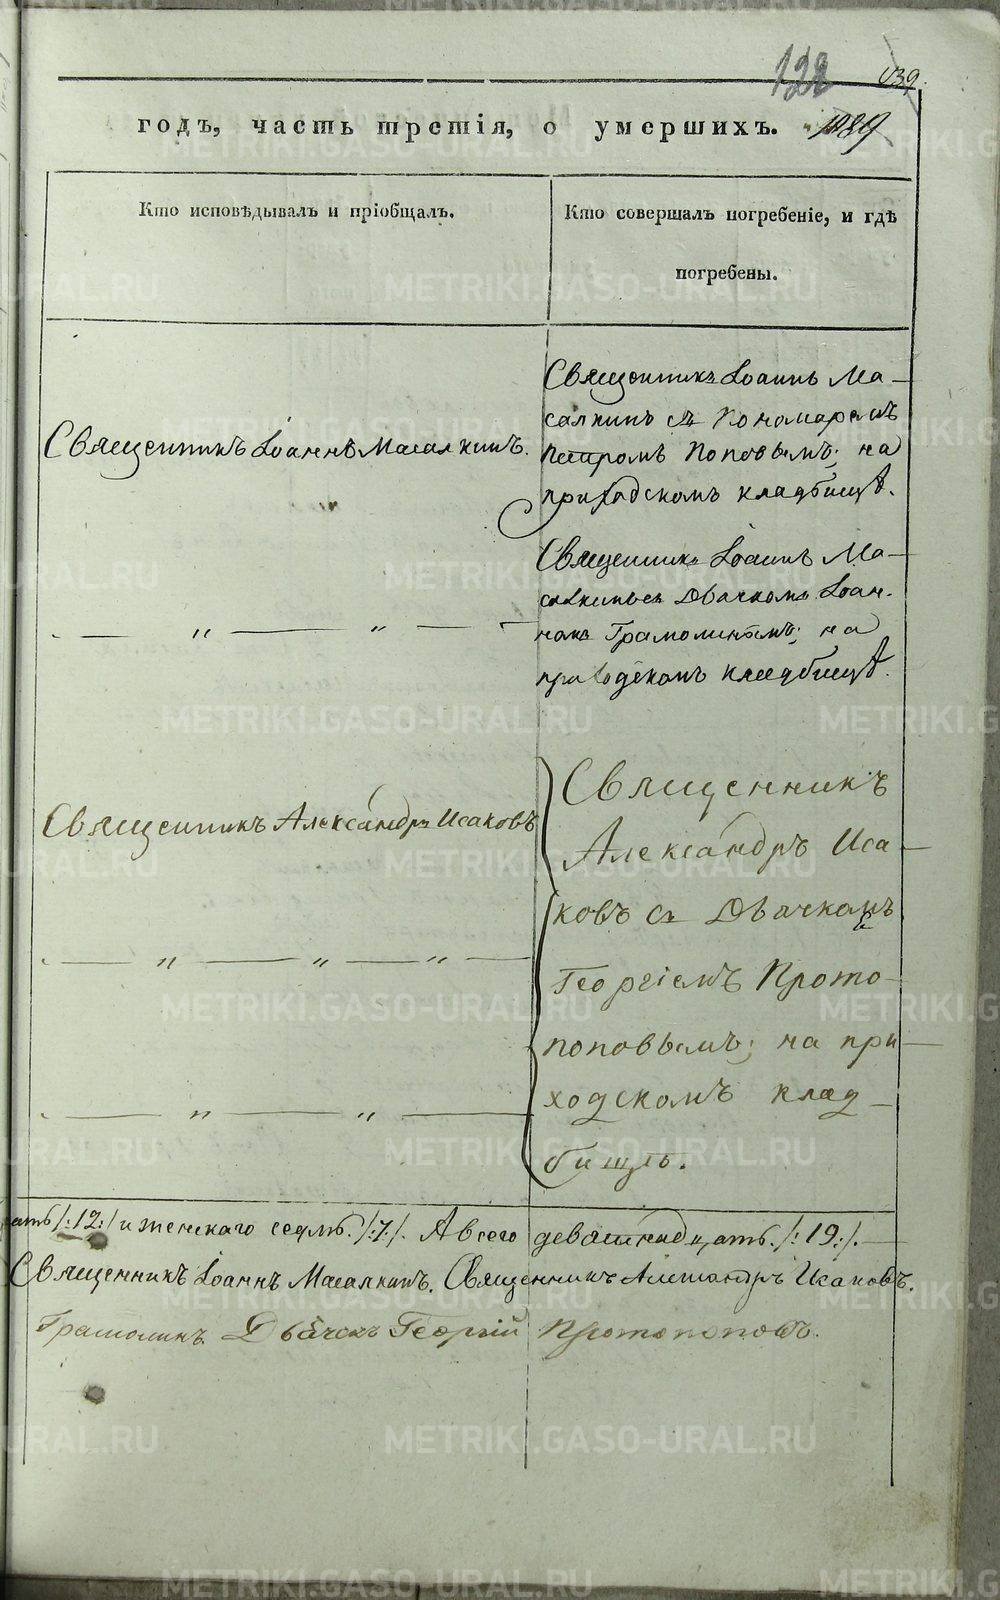 128
139
годъ, часть третія, о умершихъ. 1039
Кто исповѣдывалъ и пріобщалъ.
Кто совершалъ погребеніе, и гдѣ
погребены.
Священникъ Іоаннъ Масалкинъ.
Священникъ Іоаннъ Ма-
салкинъ съ Пономаремъ
Петромъ Поповымъ; на
приходскомъ кладбищѣ.
— " — " —
Священникъ Іоаннъ Ма-
салкинъ съ Дьячкомъ Іоан-
номъ Грамолинымъ; на
приходскомъ кладбищѣ.
Священникъ Александръ Исаковъ
Священникъ
Александръ Иса-
ковъ съ Дьячкомъ
Георгіемъ Прото-
поповымъ; на при-
ходскомъ клад-
бищѣ.
— " — " — " —
— " — " —
ать /:12:/ и женскаго седмь /:7:/. А всего девятнадцать /:19:/.
Священникъ Іоаннъ Масалкинъ. Священникъ Александръ Исаковъ.
Грамолинъ. Дьячекъ Георгій Протопоповъ.
METRIKI.GASO-URAL.RU